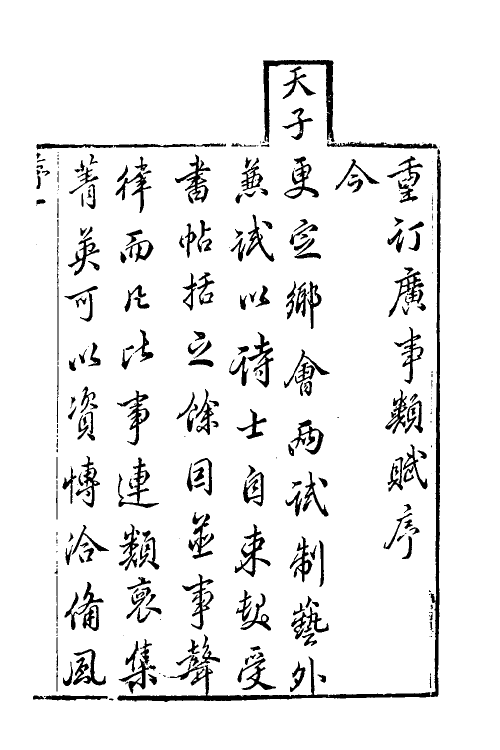 重訂廣事類賦序
今
天子更定鄉會兩試制藝外
兼試以詩士自束髮受
書帖括之餘因並事聲
律而凡比事連類裒集
菁英可以資博洽備風
序一